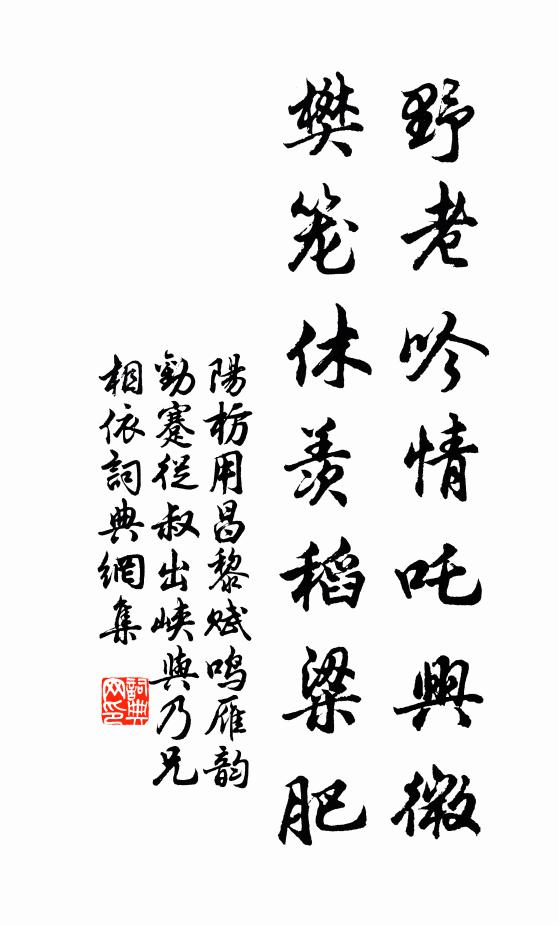 野老吟情吒興微
樊笼休羡稻粱肥
陽枋用昌黎赋鸣雁韵
勸蹇從叔出峽與乃兄
相依詞典網集
詞典網印